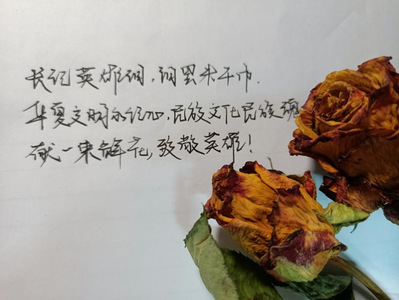 长记英雄泪,泪罢未干巾.
华夏文明永记心,民族文化民族魂
献一束鲜花,致敬英雄!